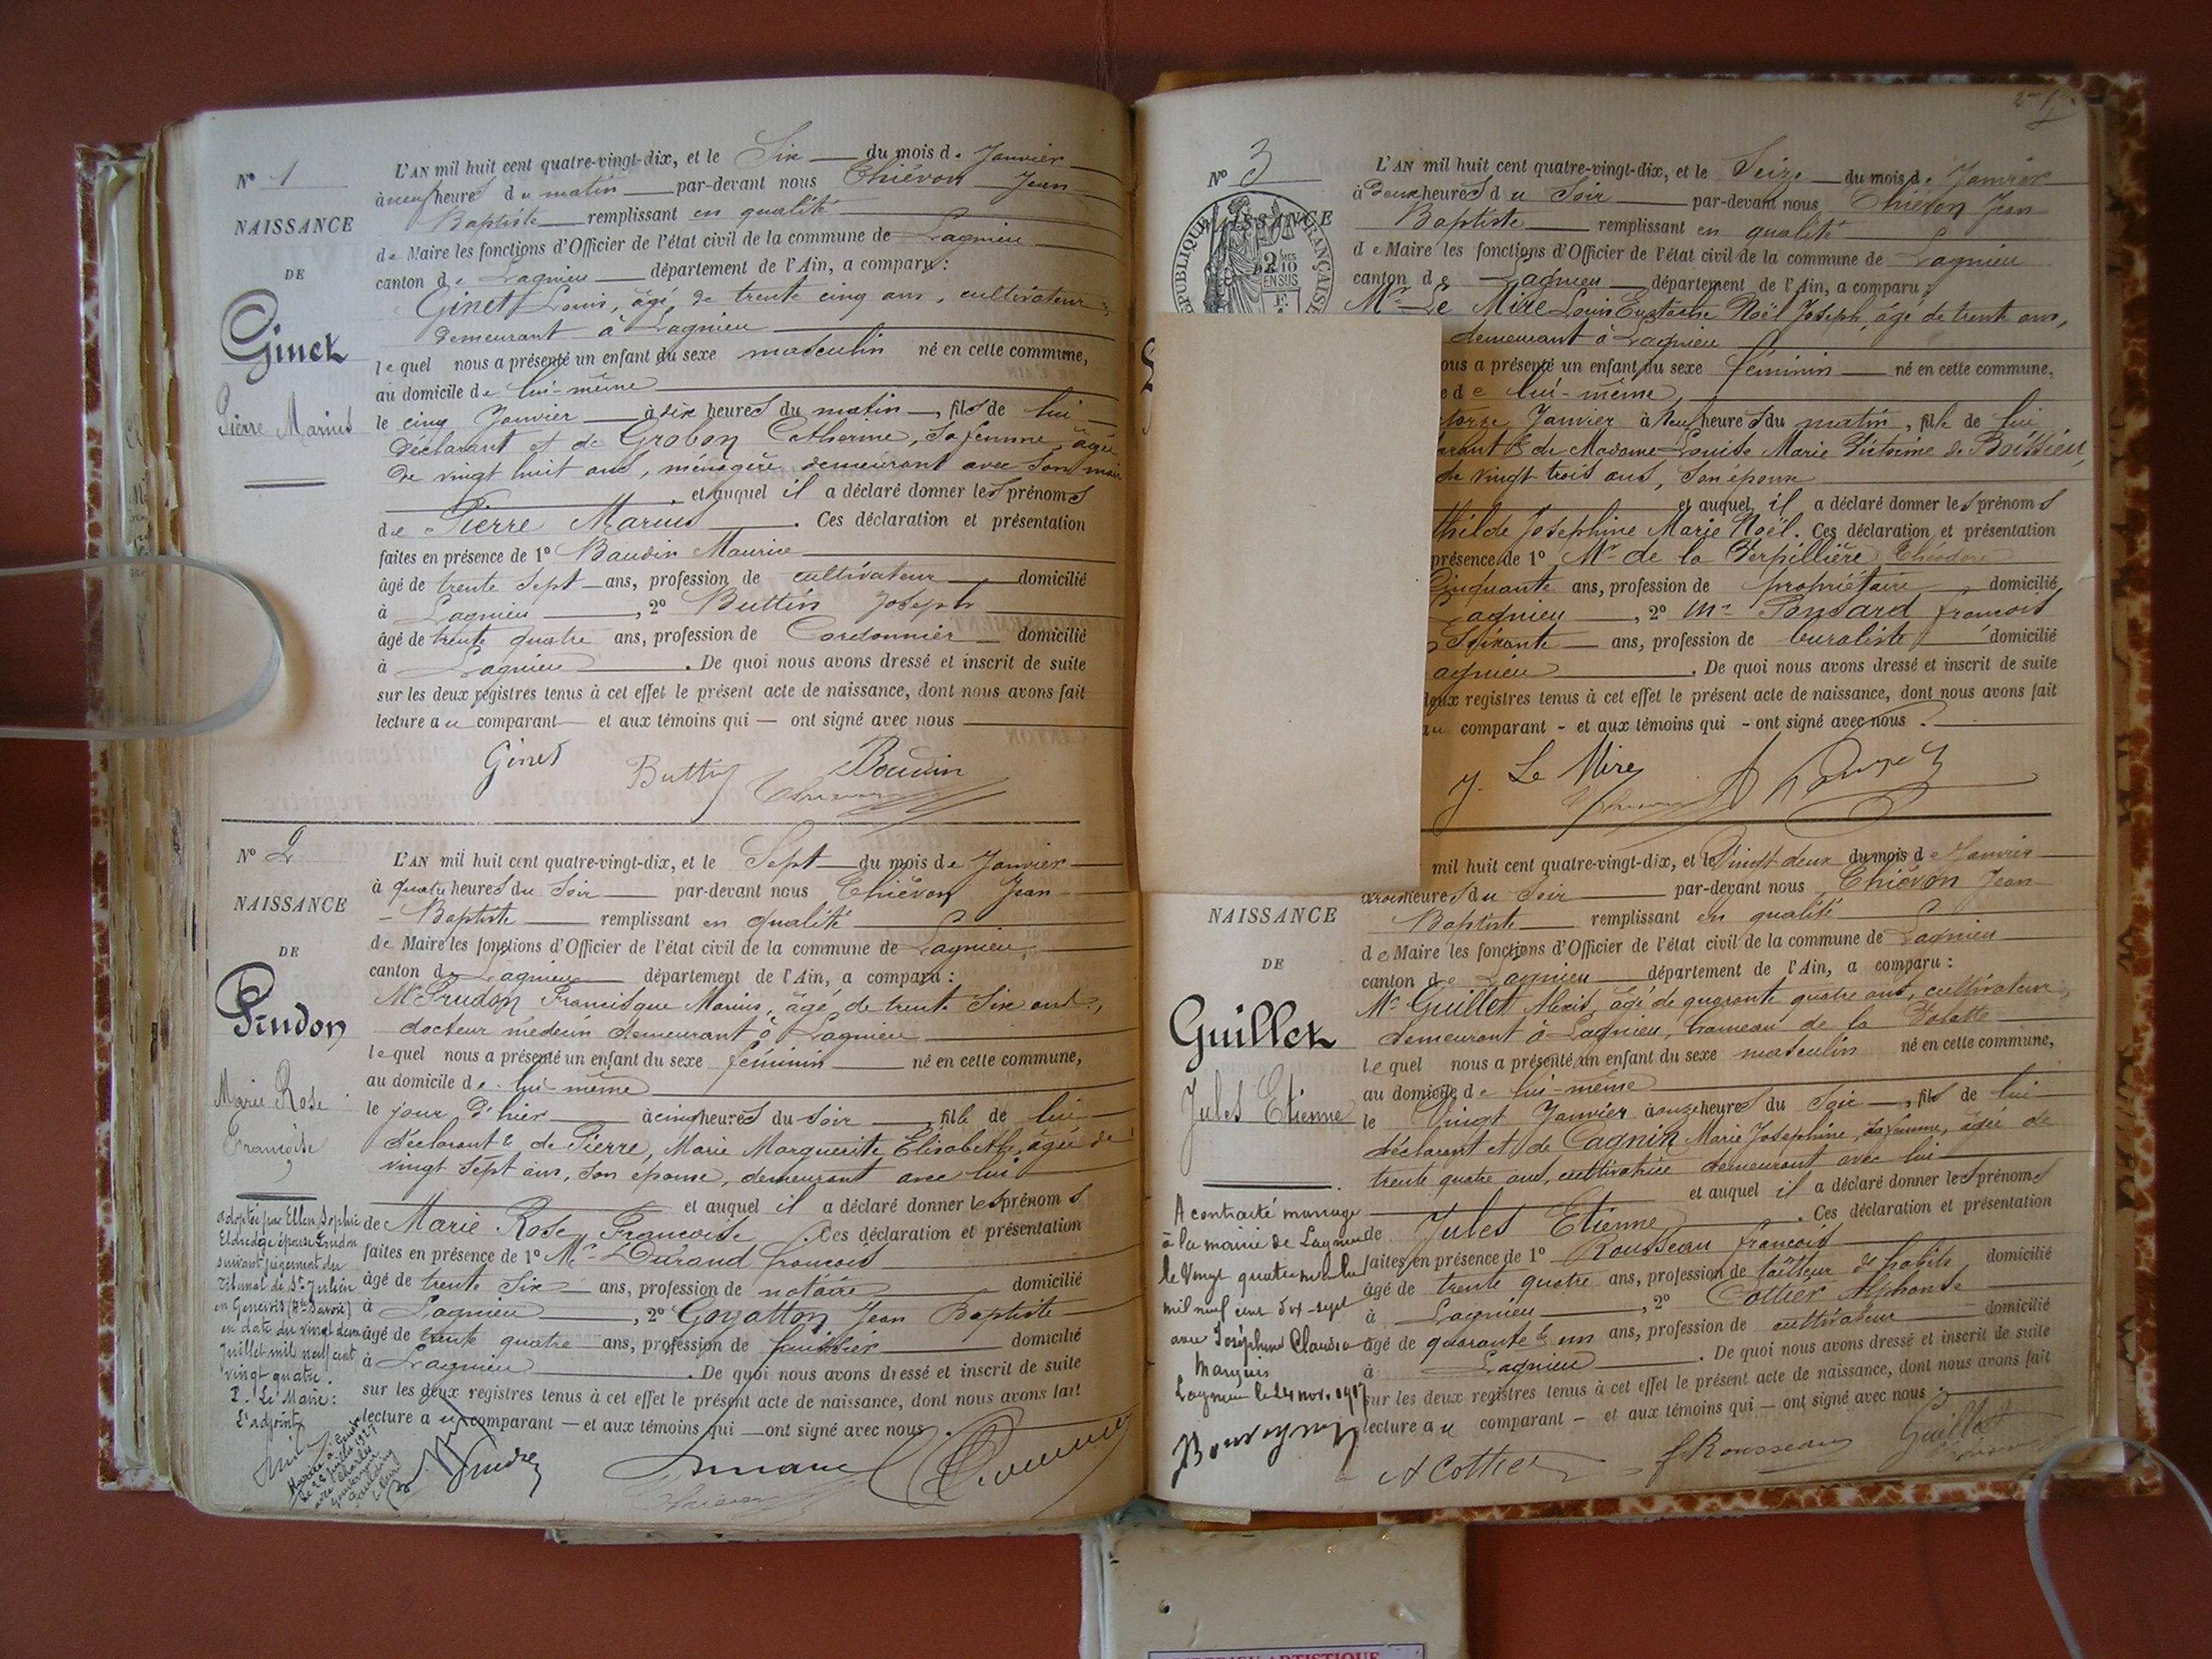 N° 1
NAISSANCE
DE
Ginet
Pierre Marius
L'AN mil huit cent quatre-vingt-dix, et le Six du mois de Janvier
à neuf heures du matin par-devant nous Chiévon Jean
Baptiste remplissant en qualité
de Maire les fonctions d'Officier de l'état civil de la commune de Lagnieu
canton de Lagnieu département de l'Ain, a comparu :
Ginet Louis, âgé de trente cinq ans, cultivateur
demeurant à Lagnieu
lequel nous a présenté un enfant du sexe masculin né en cette commune,
au domicile de lui-même
le cinq Janvier à six heures du matin, fils de lui
déclarant et de Grobon Catherine, sa femme, âgée
de vingt huit ans, ménagère demeurant avec son mari
et auquel il a déclaré donner les prénoms
de Pierre Marius. Ces déclaration et présentation
faites en présence de 1° Baudin Maurice
âgé de trente sept ans, profession de cultivateur domicilié
à Lagnieu, 2° Buttin Joseph
âgé de trente quatre ans, profession de Cordonnier domicilié
à Lagnieu. De quoi nous avons dressé et inscrit de suite
sur les deux registres tenus à cet effet le présent acte de naissance, dont nous avons fait
lecture au comparant et aux témoins qui ont signé avec nous
Ginet Buttin Baudin
N° 2
NAISSANCE
DE
Prudon
Marie Rose
Françoise
L'AN mil huit cent quatre-vingt-dix, et le Sept du mois de Janvier
à quatre heures du Soir par-devant nous Chiévon Jean
Baptiste remplissant en qualité
de Maire les fonctions d'Officier de l'état civil de la commune de Lagnieu,
canton de Lagnieu département de l'Ain, a comparu :
Mr Prudon Francisque Marius, âgé de trente six ans,
docteur médecin demeurant à Lagnieu
lequel nous a présenté un enfant du sexe féminin né en cette commune,
au domicile de lui-même
le jour d'hier à cinq heures du soir fille de lui
déclarant & de Pierre, Marie Marguerite Elisabeth, âgée de
vingt sept ans, son épouse, demeurant avec lui
et auquel il a déclaré donner les prénoms
de Marie Rose Françoise. Ces déclaration et présentation
faites en présence de 1° Mr Durand françois
âgé de trente six ans, profession de notaire domicilié
à Lagnieu, 2° Goyatton Jean Baptiste
âgé de trente quatre ans, profession de huissier domicilié
à Lagnieu. De quoi nous avons dressé et inscrit de suite
sur les deux registres tenus à cet effet le présent acte de naissance, dont nous avons fait
lecture au comparant et aux témoins qui ont signé avec nous.
adoptée par Ellen Sophie
Eldredge épouse Prudon
suivant jugement du
Tribunal de St Julien
en Genevois (Hte Savoie)
en date du vingt deux
juillet mil neuf cent
vingt quatre.
P. Le Maire :
L'adjoint
Mariée à
le 28 juillet 1927
avec Charles
N° 3
NAISSANCE
RÉPUBLIQUE FRANÇAISE
2 10
EN SUS
L'AN mil huit cent quatre-vingt-dix, et le Seize du mois de Janvier
à Deux heures du Soir par-devant nous Chiévon Jean
Baptiste remplissant en qualité
de Maire les fonctions d'Officier de l'état civil de la commune de Lagnieu
canton de Lagnieu département de l'Ain, a comparu :
Mr Le Mire Louis Eustache Noël Joseph, âgé de trente ans,
demeurant à Lagnieu
ous a présenté un enfant du sexe féminin né en cette commune,
e de lui-même,
torze Janvier à neuf heures du matin, fille de lui
arant & de Madame Louise Marie Victorine de Boissieu,
de vingt trois ans, son épouse
et auquel il a déclaré donner les prénoms
thilde Joséphine Marie Noël. Ces déclaration et présentation
présence de 1° Mr de la Verpillière Théodore
Cinquante ans, profession de propriétaire domicilié
Lagnieu, 2° Mr Ponsard françois
Soixante ans, profession de buraliste domicilié
agnieu. De quoi nous avons dressé et inscrit de suite
deux registres tenus à cet effet le présent acte de naissance, dont nous avons fait
au comparant - et aux témoins qui - ont signé avec nous.
J. Le Mire
NAISSANCE
DE
Guillet
Jules Etienne
mil huit cent quatre-vingt-dix, et le Vingt deux du mois de Janvier
à trois heures du Soir par-devant nous Chiévon Jean
Baptiste remplissant en qualité
de Maire les fonctions d'Officier de l'état civil de la commune de Lagnieu
canton de Lagnieu département de l'Ain, a comparu :
Mr Guillet Alexis, âgé de quarante quatre ans, cultivateur,
demeurant à Lagnieu, hameau de la
lequel nous a présenté un enfant du sexe masculin né en cette commune,
au domicile de lui-même
le Vingt Janvier à onze heures du Soir, fils de lui
déclarant et de Cagnin Marie Joséphine, sa femme, âgée de
trente quatre ans, cultivatrice demeurant avec lui
et auquel il a déclaré donner les prénoms
de Jules Etienne. Ces déclaration et présentation
faites en présence de 1° Rousseau françois
âgé de trente quatre ans, profession de tailleur d'habits domicilié
à Lagnieu, 2° Cottier Alphonse
âgé de quarante & un ans, profession de cultivateur domicilié
à Lagnieu. De quoi nous avons dressé et inscrit de suite
sur les deux registres tenus à cet effet le présent acte de naissance, dont nous avons fait
lecture au comparant - et aux témoins qui - ont signé avec nous.
A Cottier f. Rousseau Guillet
A contracté mariage
à la mairie de Lagnieu
le Vingt quatre novembre
mil neuf cent dix-sept
avec Joséphine Claudia
Marquis
Lagnieu le 24 nov. 1917